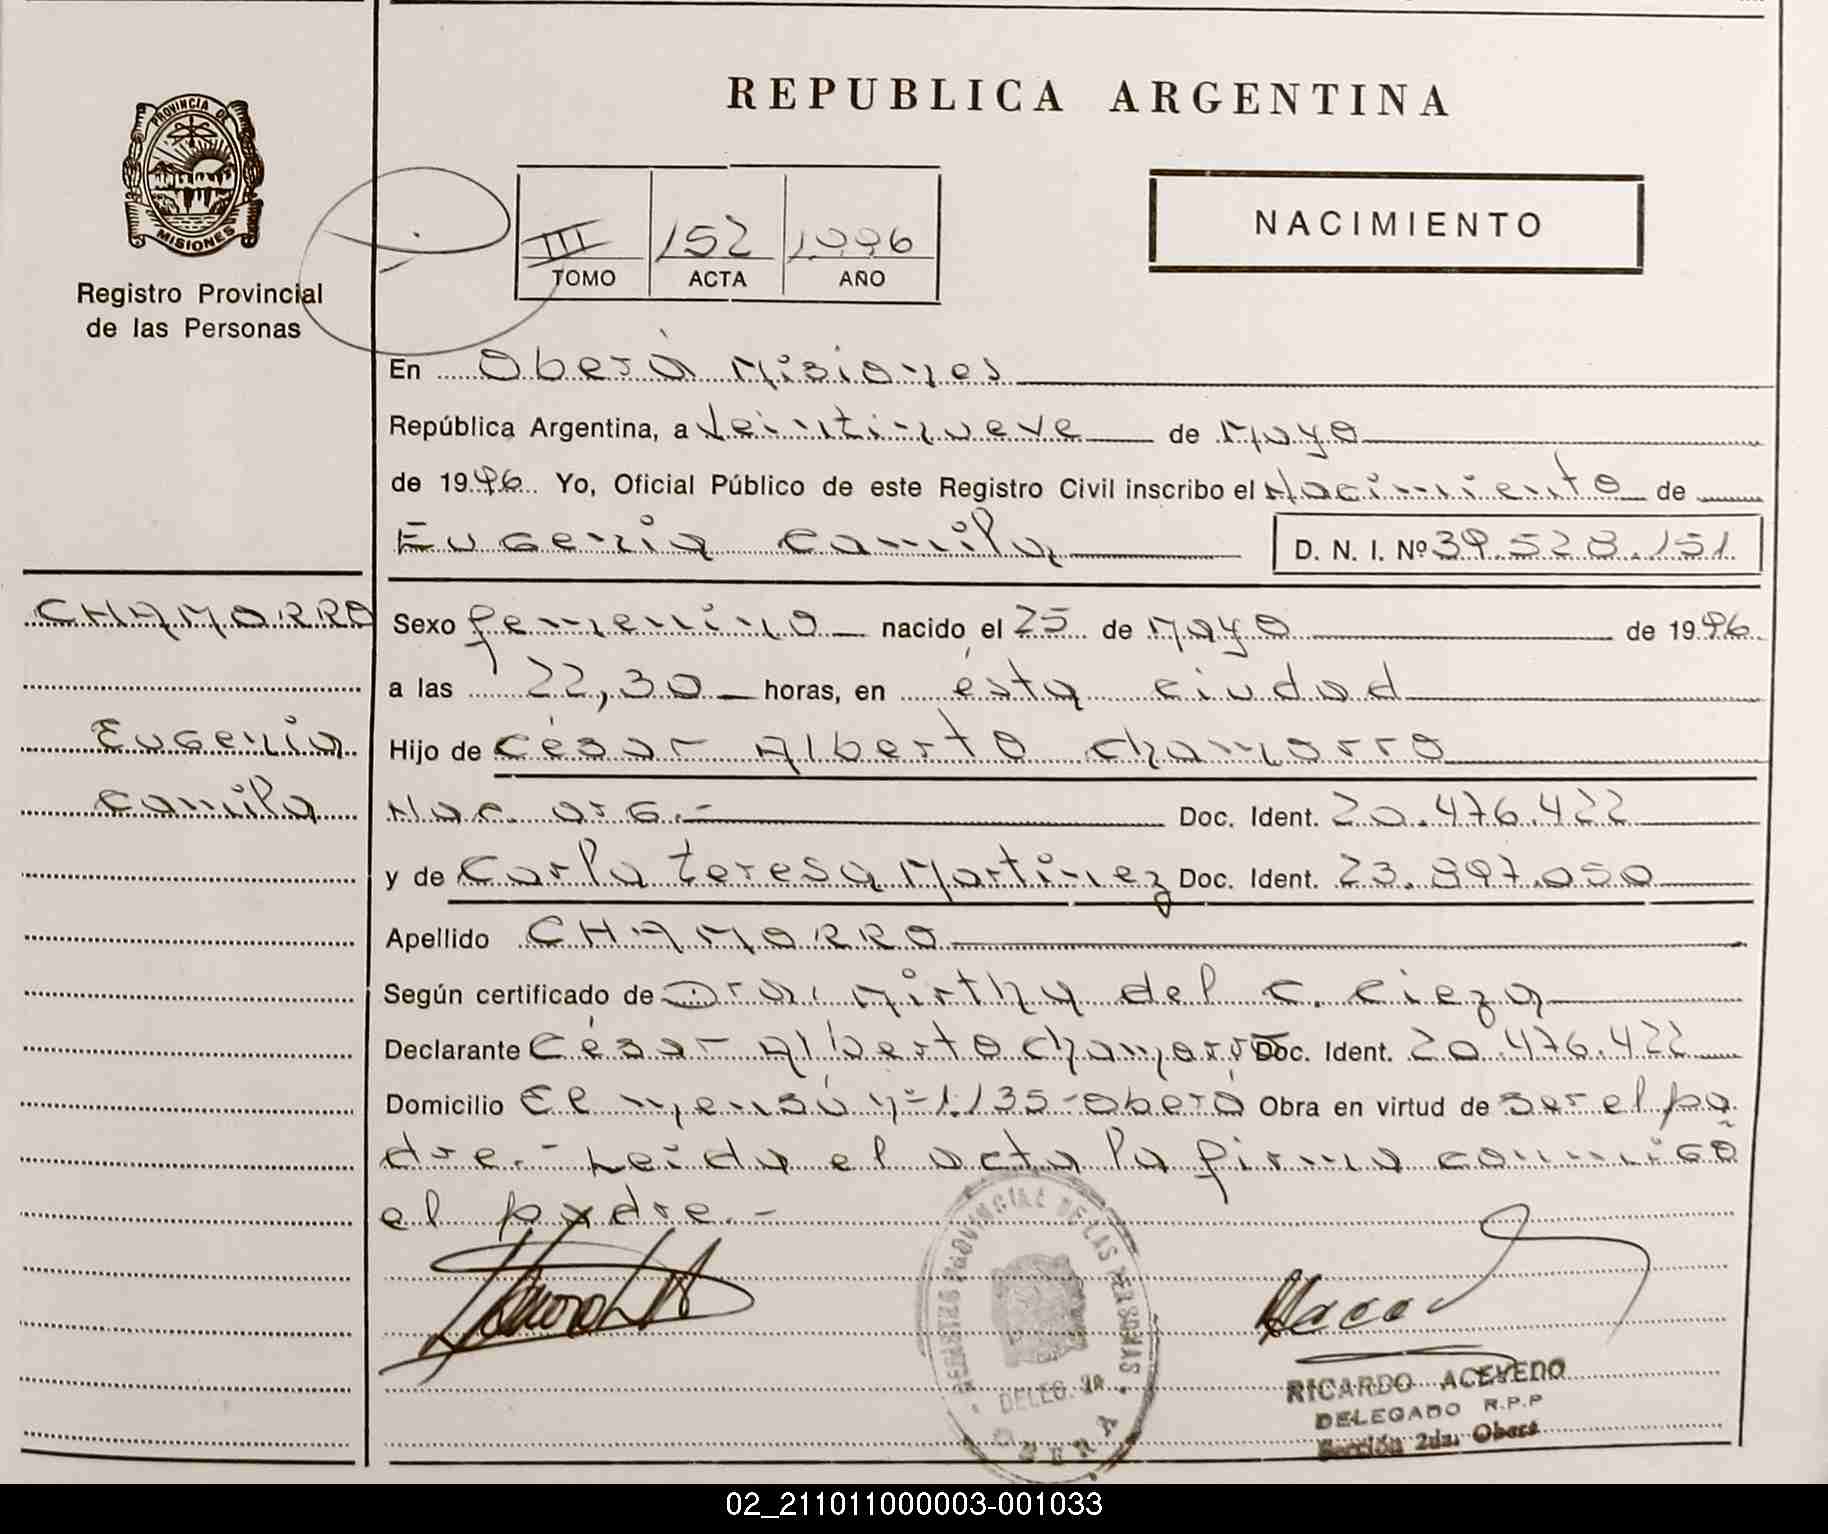 REPUBLICA ARGENTINA
PROVINCIA DE
MISIONES
Registro Provincial
de las Personas
III 152 1996
TOMO ACTA AÑO
NACIMIENTO
En Oberá Misiones
República Argentina, a Veintinueve de Mayo
de 1996 Yo, Oficial Público de este Registro Civil inscribo el Nacimiento de
Eugenia Camila D. N. I. Nº 39.528.151
CHAMORRO
Eugenia
Camila
Sexo femenino nacido el 25 de Mayo de 1996
a las 22,30 horas, en ésta ciudad
Hijo de César Alberto Chamorro
Nac. arg.- Doc. Ident. 20.476.422
y de Carla Teresa Martinez Doc. Ident. 23.897.050
Apellido CHAMORRO
Según certificado de Dra. Mirtha del C. Cieza
Declarante César Alberto Chamorro Doc. Ident. 20.476.422
Domicilio El Mensú nº 1.135-Oberá Obra en virtud de ser el pa
dre.- Leida el acta la firma conmigo
el padre.-
REGISTRO PROVINCIAL DE LAS PERSONAS
DELEG. 2a
OBERA
RICARDO ACEVEDO
DELEGADO R.P.P
Sección 2da. Oberá
02_211011000003-001033